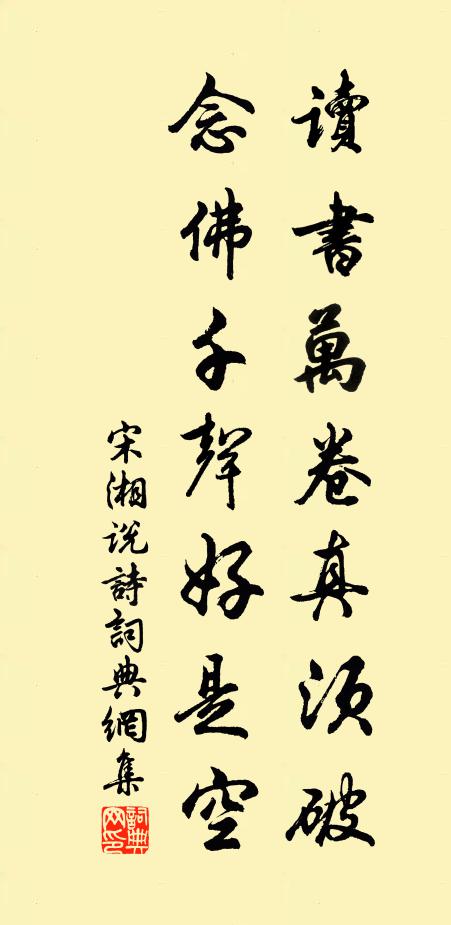 讀書萬卷真須破
念佛千聲好是空
宋湘说詩詞典網集
詞典
网印